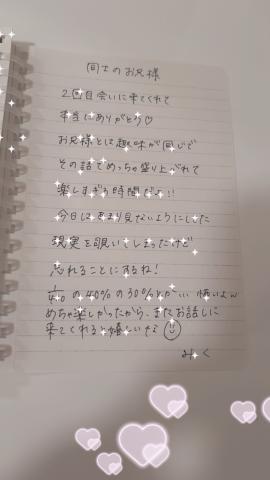 同士のお兄様
2回目会いに来てくれて
本当にありがとう♡
お兄様とは趣味が同じで
その話でめっちゃ盛り上がれて
楽しすぎる時間だよ!!
今日はあまり見ないようにした
現実を覗いてしまったけど
忘れることにするね!
の40%の30%とか… 怖いよw
めちゃ楽しかったから、またお話しに
来てくれると嬉しいな
みく